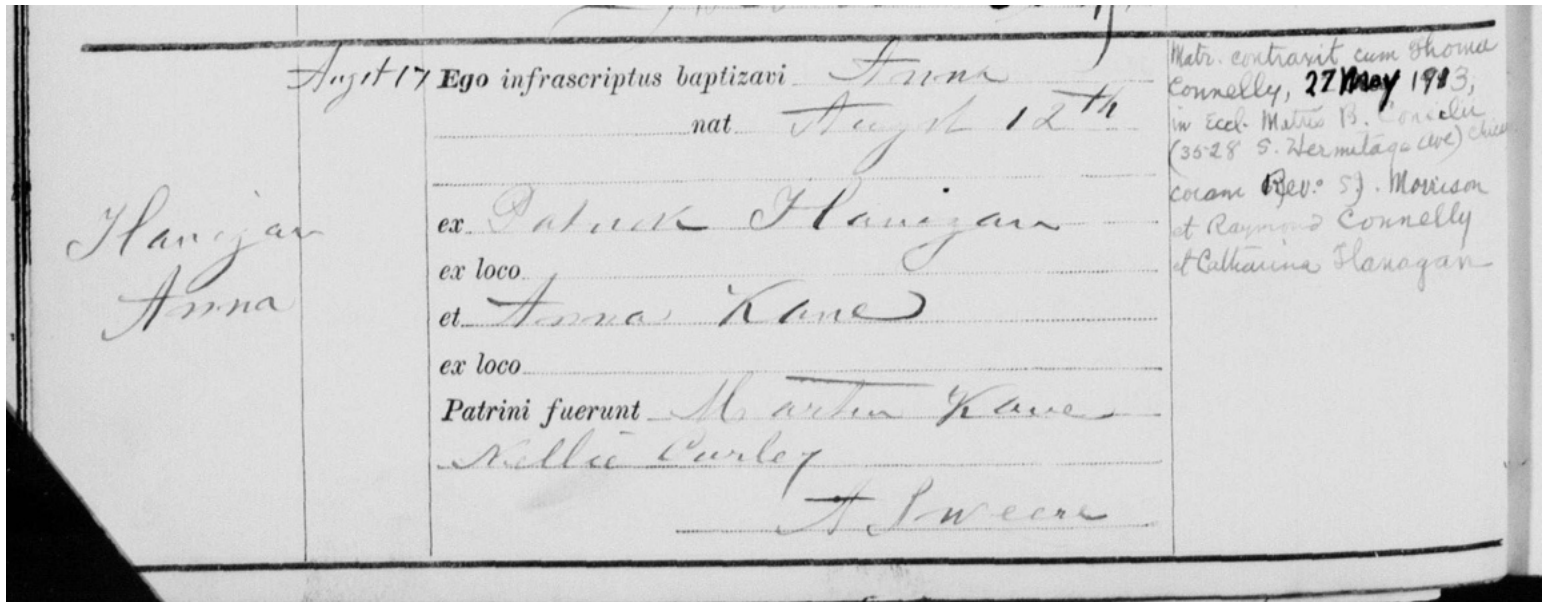 Flanigan
Anna
Augst 17
Ego infrascriptus baptizavi Anna
nat Augst 12th
ex Patrick Flanigan
ex loco
et Anna Kane
ex loco
Patrini fuerunt Martin Kane
Nellie Curley
A Sweere
Matr. contraxit cum Thoma
Connelly, 27 May 1913,
in Eccl. Matris B. Consilii
(3528 S. Hermitage Ave)
coram Rev. SJ. Morrison
et Raymond Connelly
et Catharina Flanagan